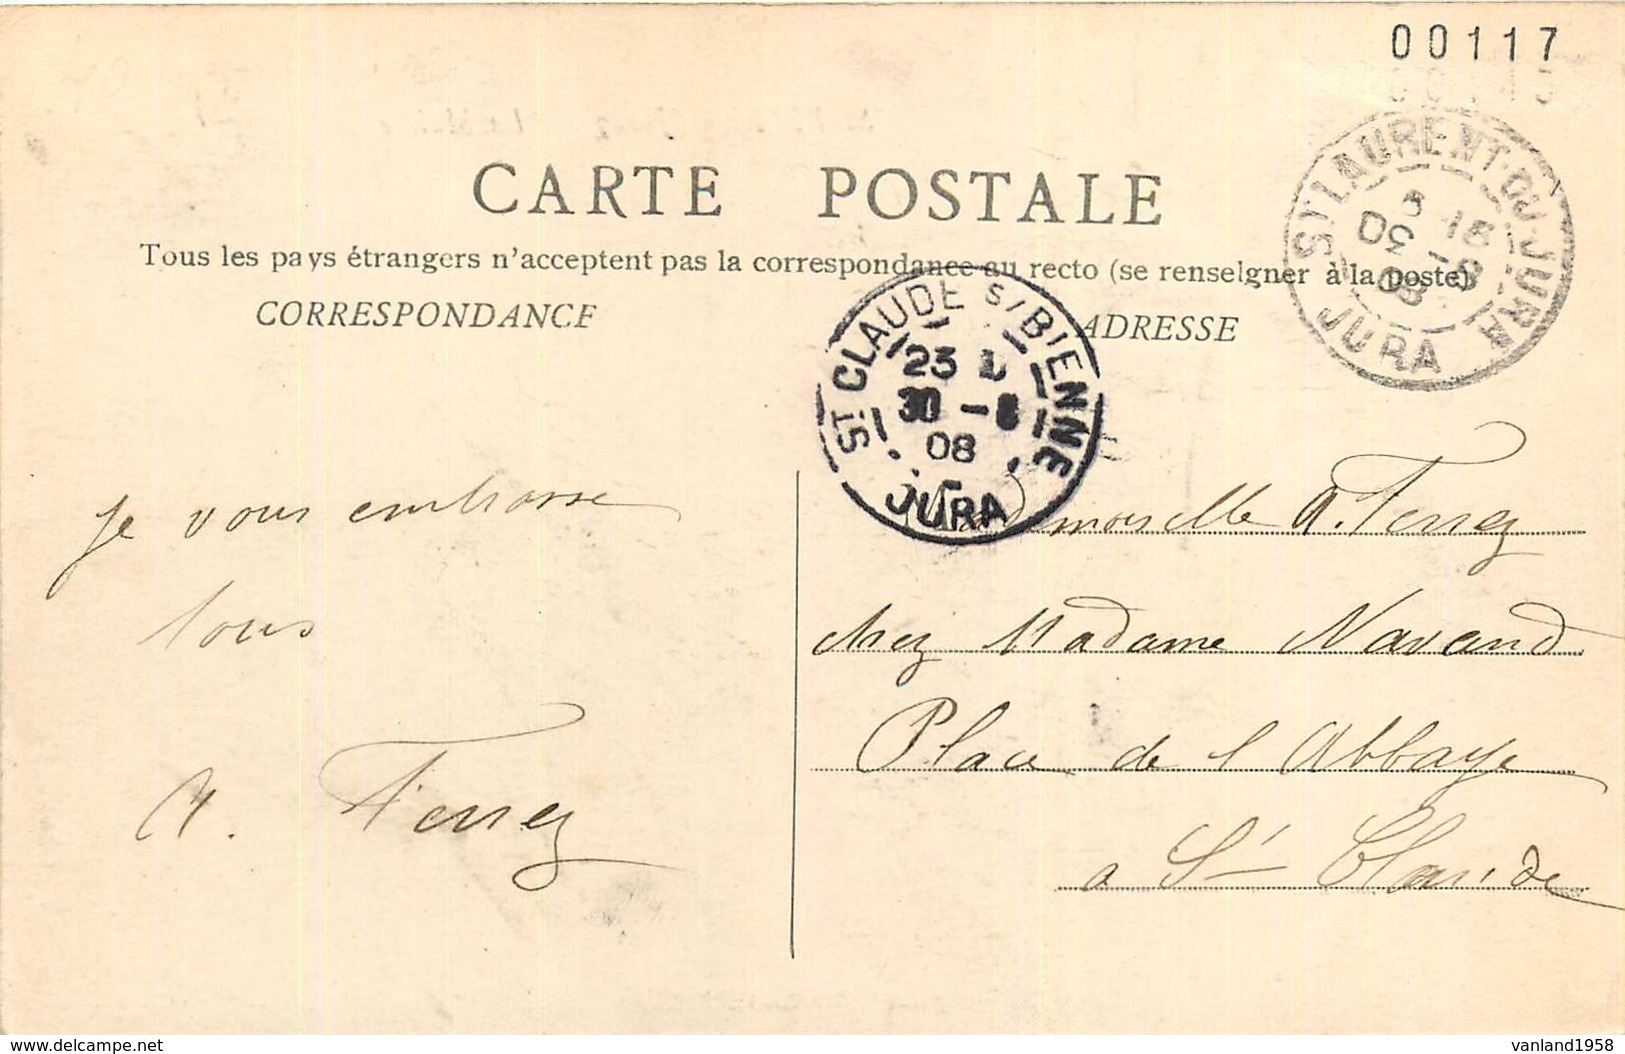 00117
CARTE POSTALE
Tous les pays étrangers n'acceptent pas la correspondance au recto (se renseigner à la poste)
CORRESPONDANCE
ADRESSE
ST LAURENT-DU-JURA
JURA
08
ST CLAUDE S/BIENNE
23
30 - 8
08
JURA
Je vous embrasse
tous
A. Ferrez
Mademoiselle A. Ferrez
chez Madame Navand
Place de l Abbaye
a St Claude
vanland1958